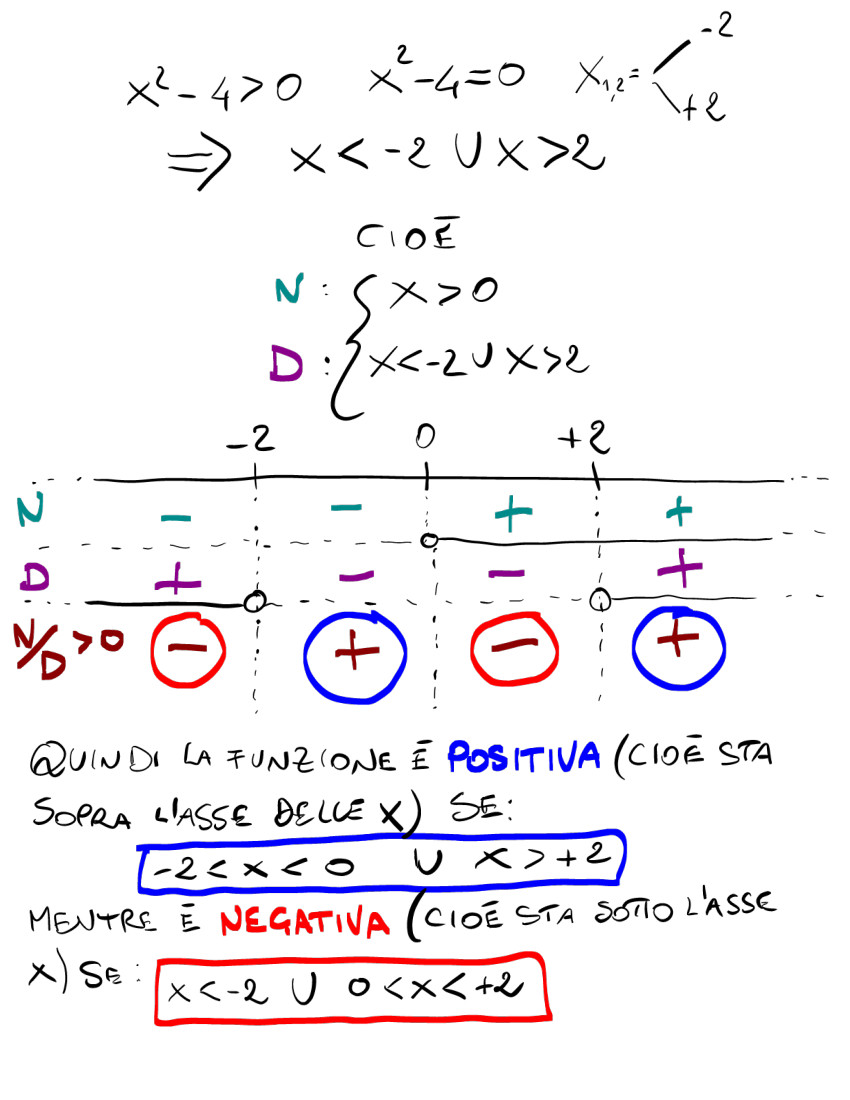 x²-4>0 x²-4=0 x₁,₂= -2 +2
⇒ x<-2 ∪ x>2
CIOĒ
N: { x>0
D: { x<-2 ∪ x>2
-2 0 +2
N - - + +
D + - - +
N/D>0 - + - +
QUINDI LA FUNZIONE Ē POSITIVA (CIOĒ STA
SOPRA L'ASSE DELLE X) SE:
-2<x<0 ∪ x>+2
MENTRE Ē NEGATIVA (CIOĒ STA SOTTO L'ASSE
X) SE:
x<-2 ∪ 0<x<+2